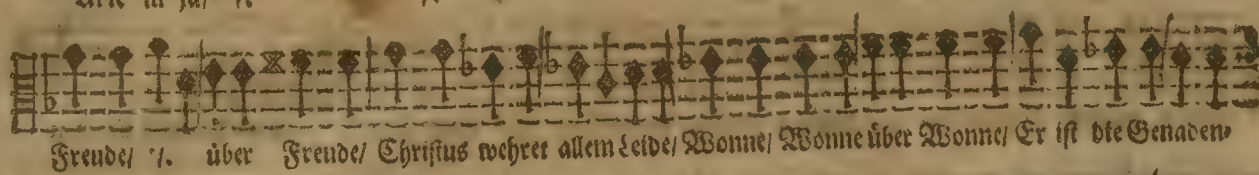 Freude/ ꝛc. über Freude/ Christus wehret allem Leide/ Wonne/ Wonne über Wonne/ Er ist die Genaden-